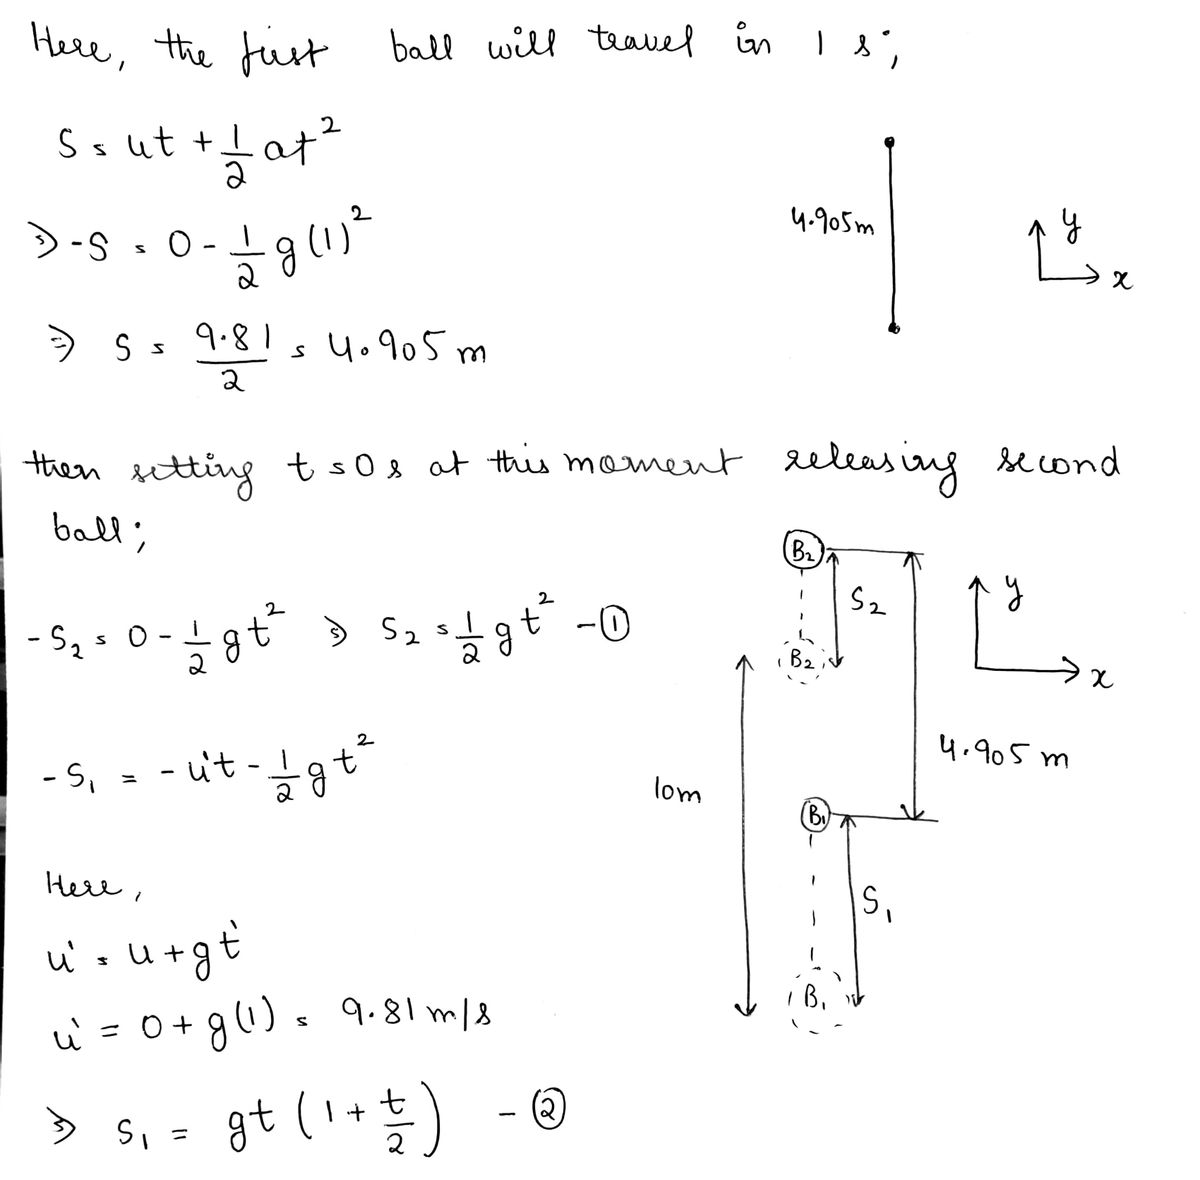 Here, the first ball will travel in 1 s;
S = ut + 1/2 at²
⇒ -S = 0 - 1/2 g(1)²
⇒ S = 9.81/2 = 4.905 m
4.905m
y
x
then setting t = 0 s at this moment releasing second
ball;
-S₂ = 0 - 1/2 gt² ⇒ S₂ = 1/2 gt² - ①
-S₁ = - u't - 1/2 gt²
Here,
u' = u + gt'
u' = 0 + g(1) = 9.81 m/s
⇒ S₁ = gt (1 + t/2) - ②
B₂
S₂
B₂
y
x
4.905 m
10m
B₁
S₁
B₁